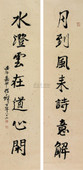 月到風来詩意解
水澄雲在道心閑